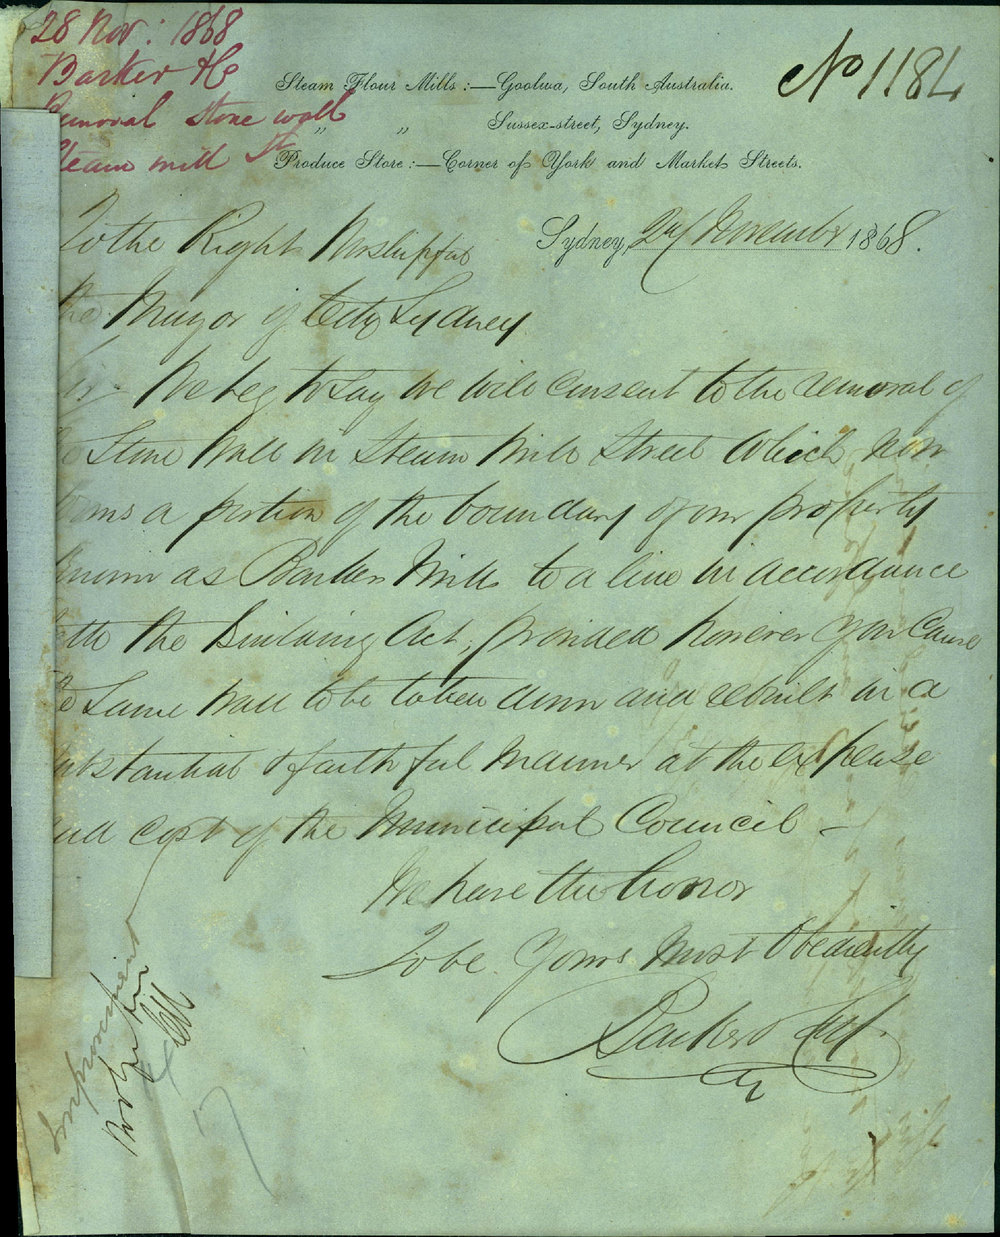 28 Nov: 1868
Barker & Co
Removal stone wall
Steam mill St
No 1184
Steam Flour Mills:—Goolwa, South Australia.
" " Sussex-street, Sydney.
Produce Store:—Corner of York and Market Streets.
Sydney, 24 November 1868.
To the Right Worshipful
the Mayor of City Sydney
Sir We beg to say we will consent to the removal of
the Stone Wall in Steam Mill Street which now
forms a portion of the boundary of our property
known as Barkers Mills to a line in accordance
with the Building Act, provided however you cause
the same wall to be taken down and rebuilt in a
substantial & faithful manner at the expense
and cost of the Municipal Council -
We have the honor
To be Yours Most Obediently
Barker & Co
Improvement